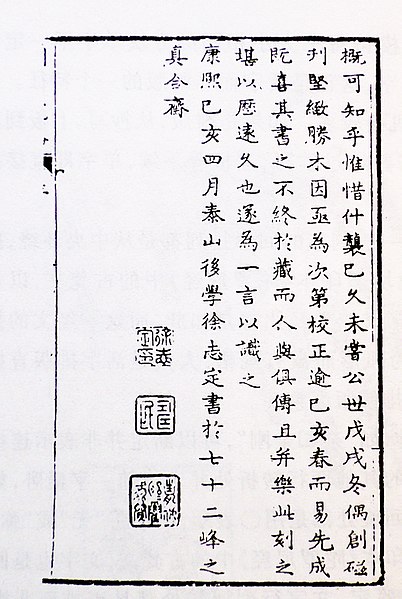 概可知乎惟惜什襲已久未嘗公世戊戌冬偶創磁
刊堅緻勝木因亟為次第校正逾己亥春而易先成
既喜其書之不終於藏而人與俱傳且并樂此刻之
堪以歷遠久也遂為一言以識之
康熙己亥四月泰山後學徐志定書於七十二峰之
真合齋